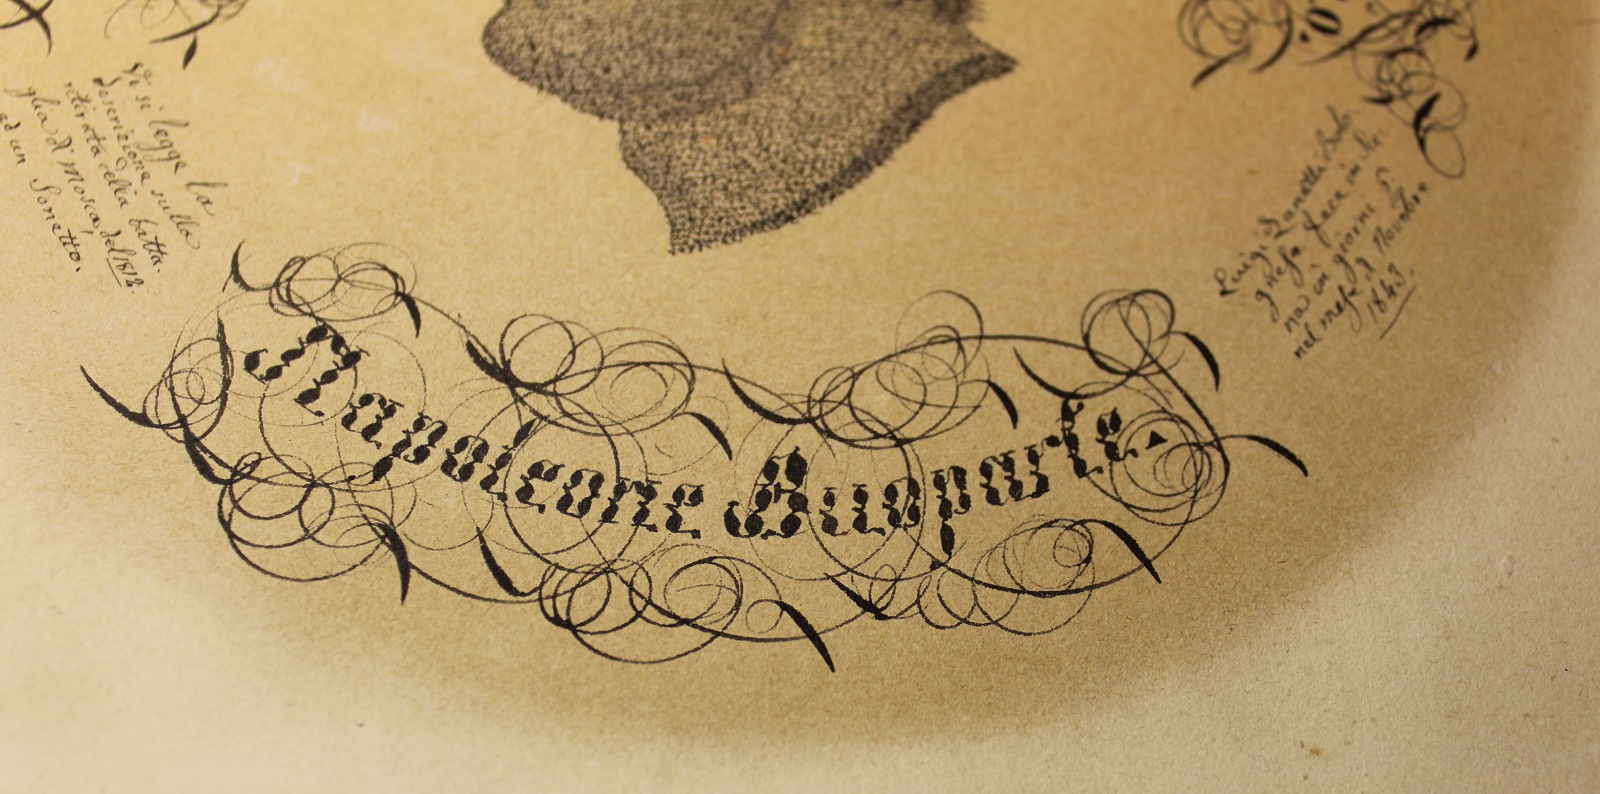 Vi si legge la
descrizione sulla
ritirata della batta.
glia di Mosca, del 1812.
ad un Sonetto.
Napoleone Buoparte.
Luigi Zanetti Bolo.
gnese fece in Mo
na in giorni 5
nel mese di Novembre
1843.